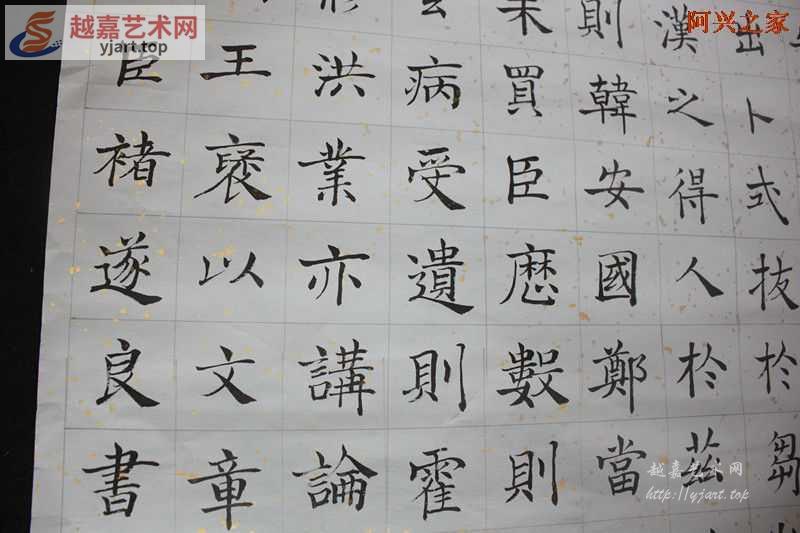 出卜式抜於芻
漢之得人於茲
則韓安國鄭當
買臣厯數則
病受遺則霍
洪業亦講論
王襃以文章
臣褚遂良書
越嘉艺术网
yjart.top
阿兴之家
越嘉艺术网
http://yjart.top